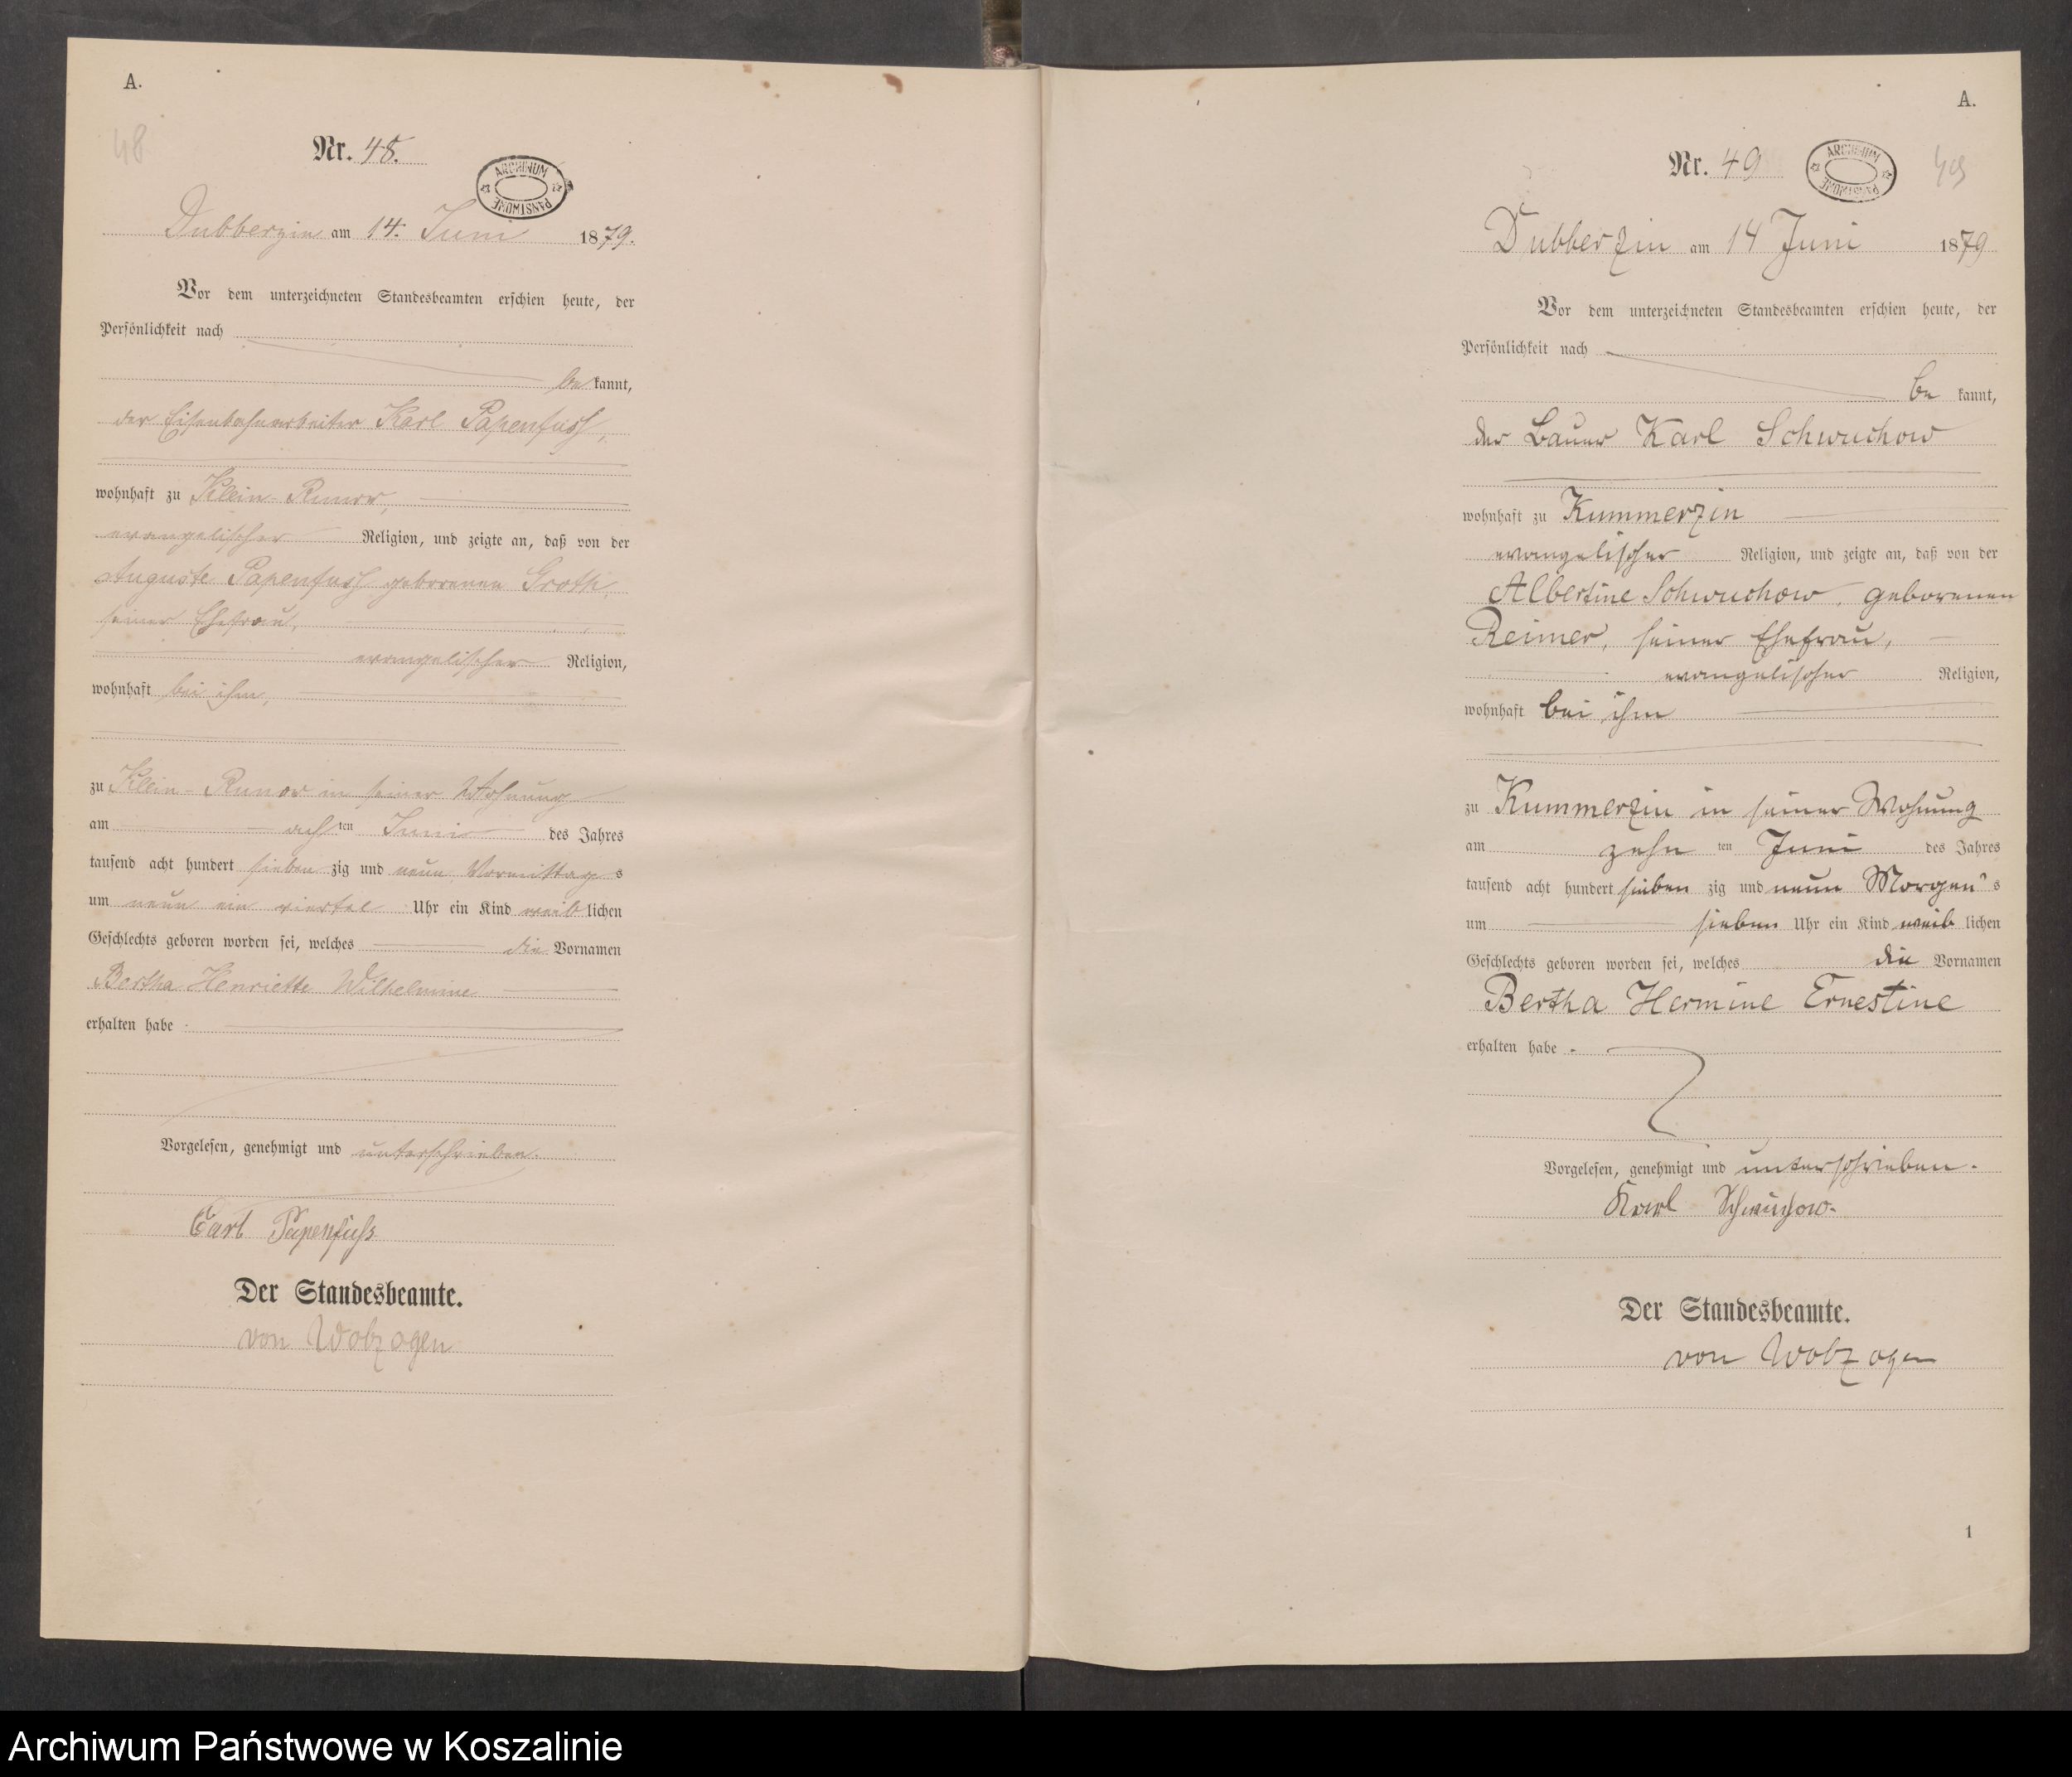 A.
48
Nr. 48.
ARCHIWUM PAŃSTWOWE
Dubberzin am 14. Juni 1879.
Vor dem unterzeichneten Standesbeamten erschien heute, der
Persönlichkeit nach
be kannt,
der Eisenbahnarbeiter Karl Papenfuss,
wohnhaft zu Klein-Runow,
evangelischer Religion, und zeigte an, daß von der
Auguste Papenfuss geborenen Groth,
seiner Ehefrau,
evangelischer Religion,
wohnhaft bei ihm,
zu Klein-Runow in seiner Wohnung
am achten Juni des Jahres
tausend acht hundert sieben zig und neun Vormittag s
um neun ein viertel Uhr ein Kind weib lichen
Geschlechts geboren worden sei, welches die Vornamen
Bertha Henriette Wilhelmine
erhalten habe.
Vorgelesen, genehmigt und unterschrieben.
Carl Papenfuß
Der Standesbeamte.
von Wobzogen
A.
Nr. 49
ARCHIWUM PAŃSTWOWE
49
Dubberzin am 14 Juni 1879
Vor dem unterzeichneten Standesbeamten erschien heute, der
Persönlichkeit nach
be kannt,
der Bauer Karl Schwuchow
wohnhaft zu Kummerzin
evangelischer Religion, und zeigte an, daß von der
Albertine Schwuchow, geborenen
Reimer, seiner Ehefrau,
evangelischer Religion,
wohnhaft bei ihm
zu Kummerzin in seiner Wohnung
am zehn ten Juni des Jahres
tausend acht hundert sieben zig und neun Morgen's
um sieben Uhr ein Kind weib lichen
Geschlechts geboren worden sei, welches die Vornamen
Bertha Hermine Ernestine
erhalten habe.
Vorgelesen, genehmigt und unterschrieben.
Karl Schwuchow.
Der Standesbeamte.
von Wobzogen
1
Archiwum Państwowe w Koszalinie